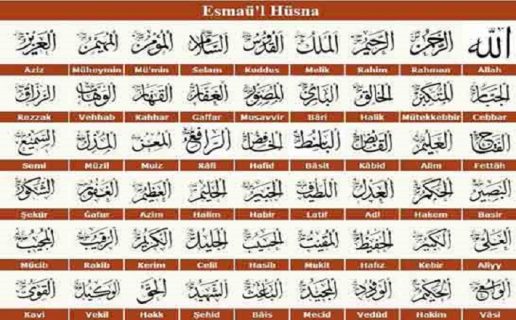 Esmaü'l Hüsna
الله الرحمن الرحيم الملك القدوس السلام المؤمن المهيمن العزيز
Aziz Müheymin Mü'min Selam Kuddus Melik Rahim Rahman Allah
الجبار المتكبر الخالق البارئ المصور الغفار القهار الوهاب الرزاق
Rezzak Vehhab Kahhar Gaffar Musavvir Bâri Halik Mütekkebbir Cebbar
الفتاح العليم القابض الباسط الخافض الرافع المعز المذل السميع
Semi Müzil Muiz Râfi Hafid Bâsit Kâbid Alim Fettâh
البصير الحكم العدل اللطيف الخبير الحليم العظيم الغفور الشكور
Şekür Gafur Azim Halim Habir Latif Adl Hakem Basir
العلي الكبير الحفيظ المقيت الحسيب الجليل الكريم الرقيب المجيب
Mücib Rakib Kerim Celil Hasib Mukit Hafız Kebir Aliyy
الواسع الحكيم الودود المجيد الباعث الشهيد الحق الوكيل القوي
Kavi Vekil Hakk Şehid Bâis Mecid Vedüd Hakim Vâsi